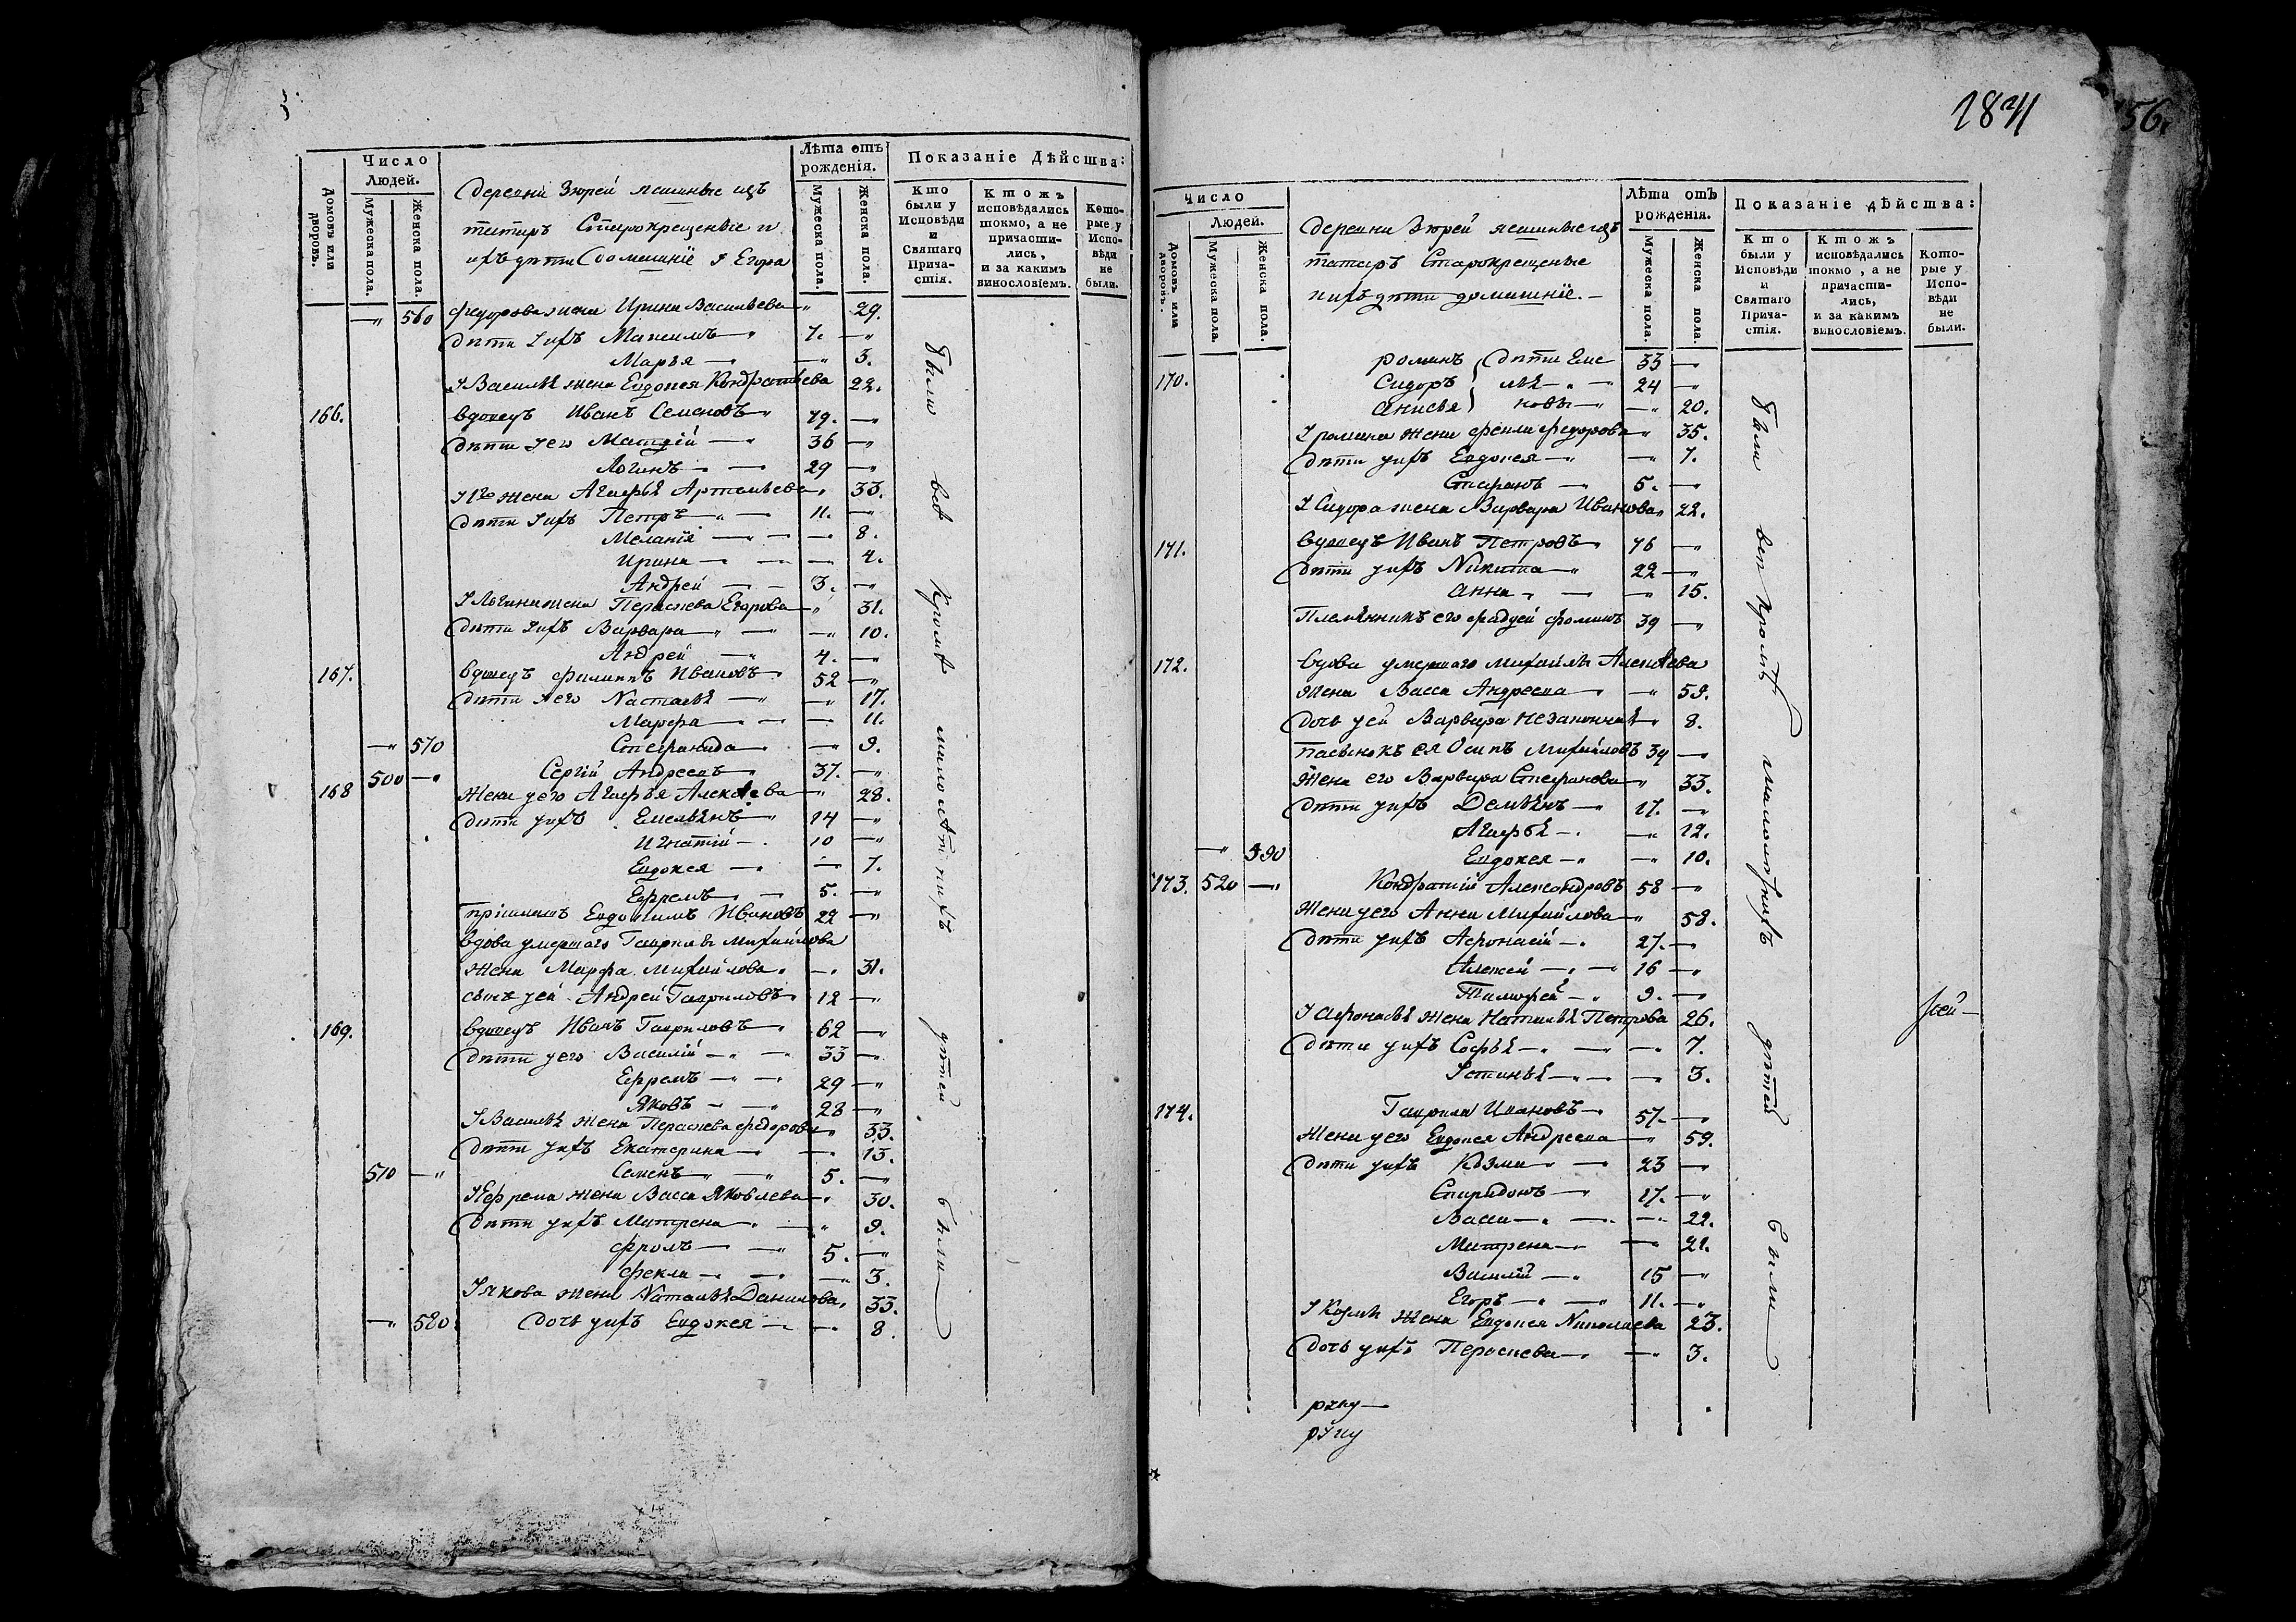 Домовъ или дворовъ.
Число Людей.
Мужеска пола.
Женска пола.
Деревни Зюрей ясашные изъ
татаръ Старокрещеные и
ихъ дѣти домашніе У Егора
Лѣта отъ рожденія.
Мужеска пола.
Женска пола.
Показаніе Дѣйства:
Кто были у Исповѣди и Святаго Прича-стія.
Ктожъ исповѣдались токмо, а не причасти-лись, и за какимъ винословіемъ.
Кото-рые у Испо-вѣди не были.
—„ 560 Федорова жена Ирина Васильева „ 29.
Дѣти У ихъ Максимъ 7. —„
Марья — —„ 3.
У Василья жена Евдокея Кондратьева 22.
166. Вдовецъ Иванъ Семеновъ 79. —„
Дѣти У его Матвѣй — 36 —„
Логинъ — — 29 —„
У его жена Агафья Артемьева 33.
Дѣти У ихъ Петръ — — 11. —„
Меланія — — — 8.
Ирина — — — 4.
Андрей — — 3. —„
У Логина жена Пераскева Егорова — 31.
Дѣти У ихъ Варвара — —„ 10.
Андрей — 4. —„
167. Вдовецъ Филиппъ Ивановъ 52 —„
Дѣти У его Настасья — —„ 17.
Марфа — — — 11.
—„ 570 Стефанида — —„ 9.
168 500 —„ Сергій Андреевъ 37. —„
Жена у его Агафья Алексѣева —„ 28.
Дѣти у ихъ Емельянъ 14 —„
Игнатій — 10 —„
Евдокея — — 7.
Ефремъ — — 5. —„
Пріимышъ Евдокимъ Ивановъ 22 —„
Вдова умершаго Гаврила Михайлова
Жена Марфа Михайлова — 31.
Сынъ у ей Андрей Гавриловъ 12 —„
169. Вдовецъ Иванъ Гавриловъ 62 —„
Дѣти у его Василій — — 33 —„
Ефремъ — — 29 —„
Яковъ — — 28 —„
У Василья жена Пераскева Федорова 33.
Дѣти у ихъ Екатерина — — 13.
510 —„ Семенъ — 5. —„
У Ефрема жена Васса Яковлева 30.
Дѣти у ихъ Матрена — — 9.
Фролъ — — 5. —„
Фекла — — —„ 3.
У Якова жена Наталья Данилова 33.
—„ 580 Дочь у ихъ Евдокея — — 8.
Были всѣ кромѣ малолѣтнихъ дѣтей были
184
156.
Домовъ или дворовъ.
Число Людей.
Мужеска пола.
Женска пола.
Деревни Зюрей ясашные изъ
татаръ Старокрещеные
и ихъ дѣти домашніе. —
Лѣта отъ рожденія.
Мужеска пола.
Женска пола.
Показаніе дѣйства:
Кто были у Исповѣди и Святаго Прича-стія.
Ктожъ исповѣдались токмо, а не причасти-лись, и за какимъ винословіемъ.
Кото-рые у Испо-вѣди не были.
Романъ Дѣти Еме 33 —„
170. Сидоръ лья — — 24 —„
Анисья новы — —„ 20.
У Романа жена Фекла Федорова 35.
Дѣти у ихъ Евдокея — —„ 7.
Стефанъ — 5. —„
У Сидора жена Варвара Иванова 22.
171. Вдовецъ Иванъ Петровъ 76 —„
Дѣти у ихъ Никита 22 —„
Анна — —„ 15.
Племянникъ его Фадѣй Фоминъ 39 —„
172. Вдова умершаго Михайлы Алексѣева
Жена Васса Андреева — —„ 59.
Дочь у ей Варвара незаконная 8.
Пасынокъ ея Осипъ Михайловъ 34 —„
Жена его Варвара Стефанова 33.
Дѣти у ихъ Демьянъ — 17. —„
Агафья — —„ 12.
—„ 590 Евдокея — —„ 10.
173. 520 —„ Кондратій Александровъ 58 —„
Жена у его Анна Михайлова — 58.
Дѣти у ихъ Афонасій — 27. —„
Алексей — — 16 —„
Тимофей — 9. —„
У Афонасья жена Наталья Петрова 26.
Дѣти у ихъ Софья — — — 7.
Устинья — — — 3.
174. Гаврила Ивановъ 57. —„
Жена у его Евдокея Андреева — 59.
Дѣти у ихъ Козма — — 23 —„
Спиридонъ — 17. —„
Васса — — — 22.
Матрена — — 21.
Василій — 15 —„
Егоръ — — 11. —„
У Козмы жена Евдокея Николаева 23.
Дочь у ихъ Пераскева — — 3.
Были всѣ кромѣ малолѣтнихъ дѣтей были